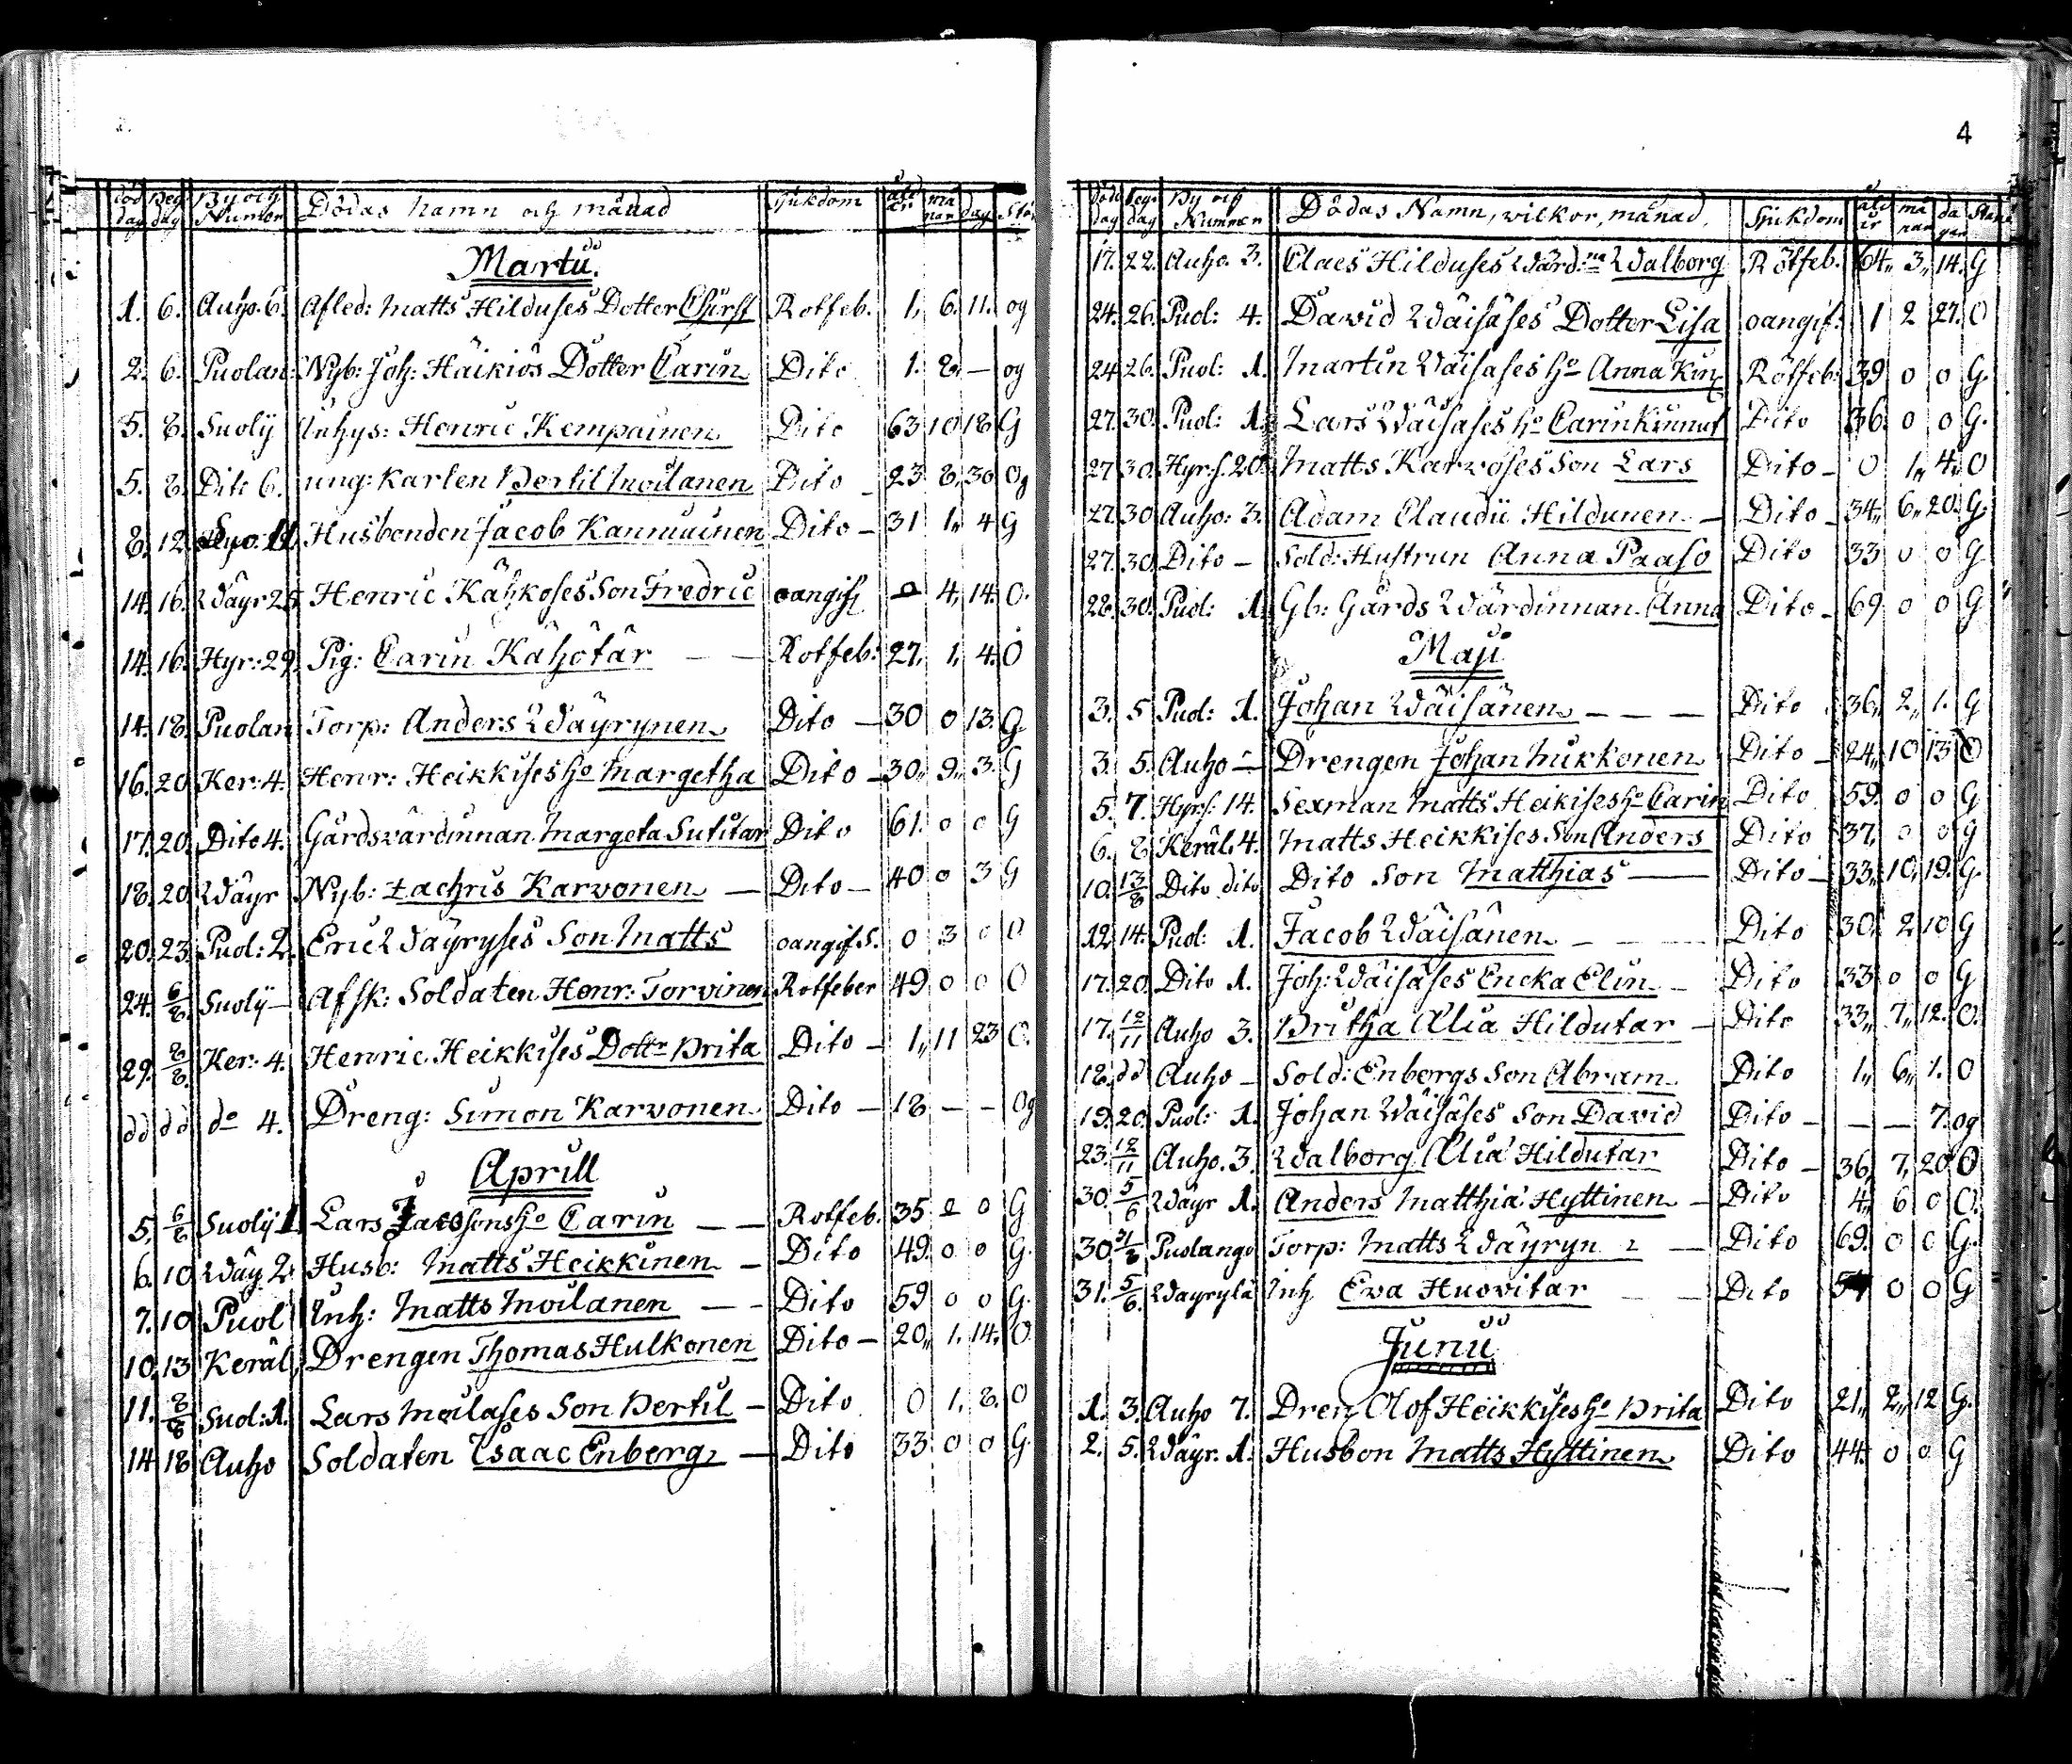 död dag Beg dag By och Numer Dödas namn och månad Sjukdom åld år må nar dag Stå
Martii.
1. 6. Auho. 6. Afled: Matts Hilduses Dotter Chirst Rotfeb. 1. 6. 11. og
2. 6. Puolan: Nyb: Joh: Häikiös Dotter Carin Dito 1. 8. — og
5. 8. Suolÿ Inhys: Henric Kempainen Dito 63 10 18 G
5. 8. Dito 6. ung: karlen Bertil Moilanen Dito 23 8. 30 Og
8. 12. Husbonden Jacob Kanniainen Dito — 31 1. 4 G
14. 16. Wäyr Henric Kähköses Son Fredric oangif 0 4. 14. O.
14. 16. Hyr: 29. Pig: Carin Kähötär — — Rotfeb: 27. 1. 4. O
14. 18. Puolan Torp: Anders Wäyrynen Dito — 30 0 13. G
16. 20 Ker: 4. Henr: Heikkises ho Margetha Dito — 30. 9. 3. G
17. 20. Dito 4. Gårdsvärdinnan Margeta Sutitar Dito 61. 0 0 G
18. 20 Wäyr Nyb: Zachris Karvonen — Dito — 40 0 3 G
20. 23. Puol: 2. Eric Wäyryses Son Matts oangif. S. 0 3 0 O
24. 6/8. Suolÿ — Afsk: Soldaten Henr: Torvinen Rotfeber 49 0 0 O
29. 8/8. Ker: 4. Henric Heikkises Dottr Brita Dito — 1. 11 23 O.
dd dd do 4. Dreng: Simon Karvonen Dito — 18 — — Og
Aprill
5. 6/8 Suolÿ 1. Lars Jacobsons ho Carin — — Rotfeb. 35 2 0 G
6. 10 Wäy 2. Husb: Matts Heikkinen — Dito 49. 0 0 G.
7. 10 Puol Inh: Matts Moilanen — — Dito 59 0 0 G.
10. 13 Keräl, Drengen Thomas Hulkonen Dito — 20. 1. 14. O
11. 8/8 Suol: 1. Lars Moilases Son Bertil — Dito 0 1. 8. O
14 18 Auho Soldaten Isaac Enberg — Dito 33 0 0 G.
4
Död dag Begr dag By och Nummer Dödas Namn, vilkor, månad Sjukdom åld år må nar da gar Stånd
17. 22. Auho. 3. Claes Hilduses Wärd:na Walborg Rötfeb. 64. 3. 14. G
24. 26. Puol: 4. David Wäisäses Dotter Lisa oangif: 1 2 27. O
24 26. Puol: 1. Martin Wäisäses ho Anna Kin Rötfeb: 39 0 0 G.
27. 30. Puol: 1. Lars Wäisäses ho Carin Kinnut Dito 36. 0 0 G.
27 30. Hyr:s. 20. Matts Karvoses Son Lars Dito — 0 1. 4. O
27. 30 Auho: 3. Adam Claudii Hildunen — Dito — 34. 6. 20. G.
27. 30. Dito — Sold: Hustrun Anna Paaso Dito 33 0 0 G
28. 30. Puol: 1. Gl: Gårds Wärdinnan Anna Dito — 69. 0 0 G
Maji
3. 5 Puol: 1. Johan Wäisänen — — — Dito 36. 2. 1. G
3. 5. Auho — Drengen Johan Mukkonen Dito — 24. 10 13 O
5. 7. Hyr:s: 14. Sexman Matts Heikises ho Carin Dito 59. 0 0 G
6. 8 Keräl. 4. Matts Heikkises Son Anders Dito 37. 0 0 G
10. 13/8 Dito dito Dito Son Matthias — Dito — 33. 10. 19. G.
12. 14. Puol: 1. Jacob Wäisänen — — — Dito 30. 2 10 G
17. 20. Dito 1. Joh: Wäisäses Encka Elin — Dito 33 0 0 G
17. 12/11 Auho 3. Britha Ælia Hildutar — Dito 33. 7. 12. O.
18. dd Auho — Sold: Enbergs Son Abram Dito 1. 6. 1. O
19. 20. Puol: 1. Johan Wäisäses Son David Dito — — — 7. og
23. 12/11 Auho. 3. Walborg Ælia Hildutar Dito — 36. 7. 20. O
30. 5/6 Wäyr 1. Anders Matthiæ Hyttinen — Dito 4. 6 0 O.
30. Puolango Torp: Matts Wäyryn — Dito 69. 0 0 G.
31. 5/6. Wäyrylä Inh Eva Huovitar — — Dito 0 0 G
Junii
1. 3. Auho 7. Dreng Olof Heikkises ho Brita Dito 21. 2. 12 G.
2. 5. Wäyr. 1. Husbon Matts Hyttinen Dito 44. 0 0 G